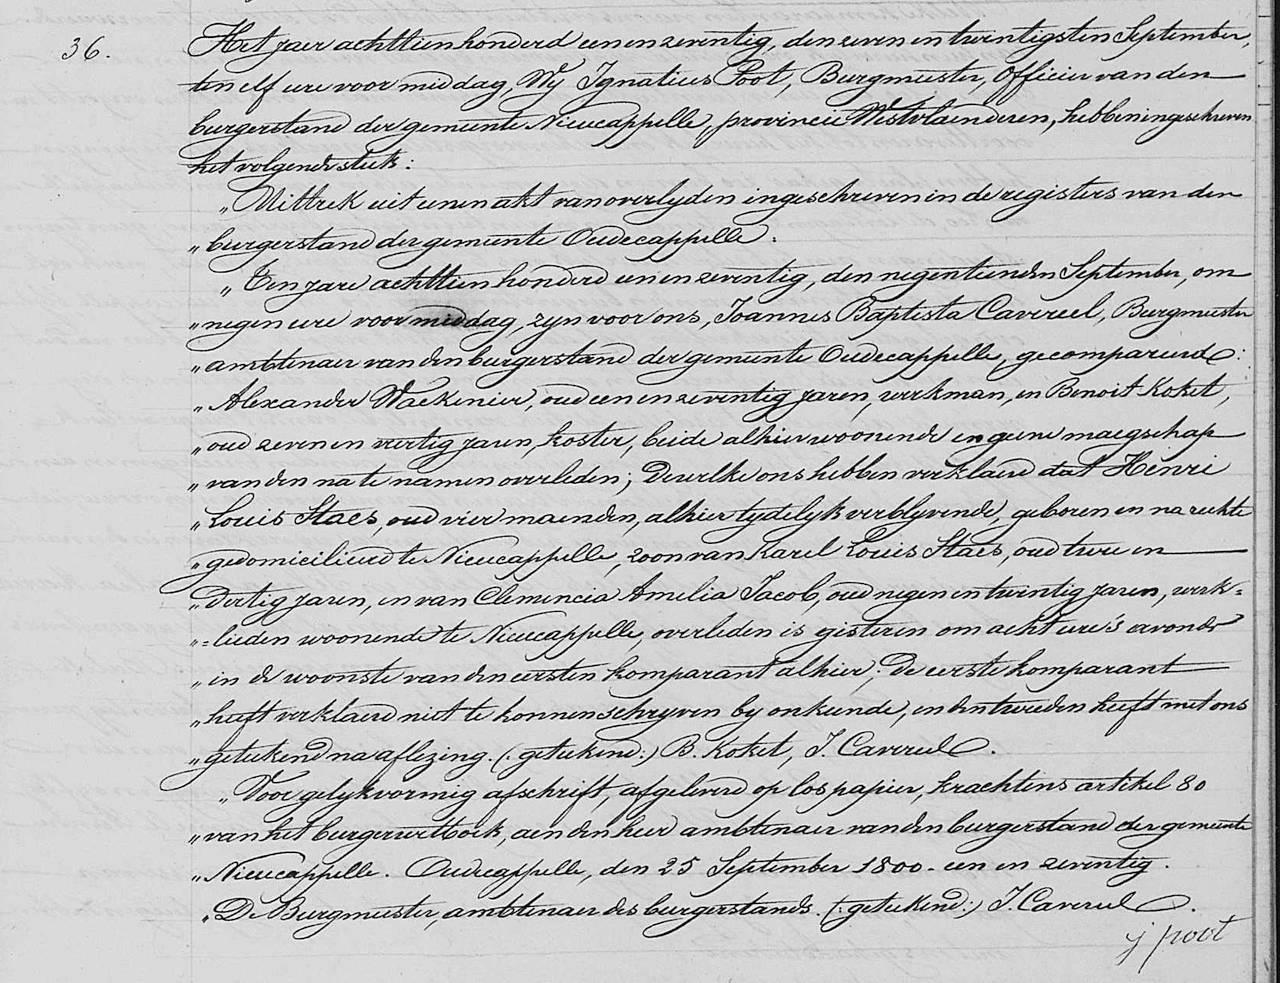 36.
Het jaer achttien honderd een en zeventig, den zeven en twintigsten September,
ten elf ure voor middag, Wij Ignatius Poot, Burgmeester, Officier van den
burgerstand der gemeente Nieucappelle, provincie Westvlaenderen, hebben ingeschreven
het volgende stuk:
„ Uittrek uit eenen akt van overlyden ingeschreven in de registers van den
„ burgerstand der gemeente Oudecappelle.
„ Ten jare achttien honderd een en zeventig, den negentienden September, om
„ negen ure voor middag, zyn voor ons, Joannes Baptista Cavereel, Burgmeester
„ ambtenaer van den burgerstand der gemeente Oudecappelle, gecompareerd:
„ Alexander Waekenier, oud een en zeventig jaren, werkman, en Benoit Koket,
„ oud zeven en veertig jaren, koster, beide alhier woonende en geene maegschap
„ van den na te namen overleden; Dewelke ons hebben verklaerd dat Henri
„ Louis Staes, oud vier maenden, alhier tydelyk verblyvende, geboren en na rechte
„ gedomicilieerd te Nieucappelle, zoon van Karel Louis Staes, oud twee en
„ dertig jaren, en van Clemencia Amelia Jacob, oud negen en twintig jaren, werk=
„ =lieden woonende te Nieucappelle, overleden is gisteren om acht ure 's avonds
„ in de woonste van den eersten komparant alhier. De eerste komparant
„ heeft verklaerd niet te konnen schryven by onkunde, en den tweeden heeft met ons
„ geteekend na aflezing. (: geteekend:) B. Koket, J. Cavereel.
„ Voor gelykvormig afschrift, afgeleverd op los papier, krachtens artikel 80
„ van het burgerwetboek, aen den heer ambtenaer van den burgerstand der gemeente
„ Nieucappelle. Oudecappelle, den 25 September 1800. een en zeventig.
„ De Burgmeester, ambtenaer des burgerstands. (: geteekend:) J. Cavereel.
j poot